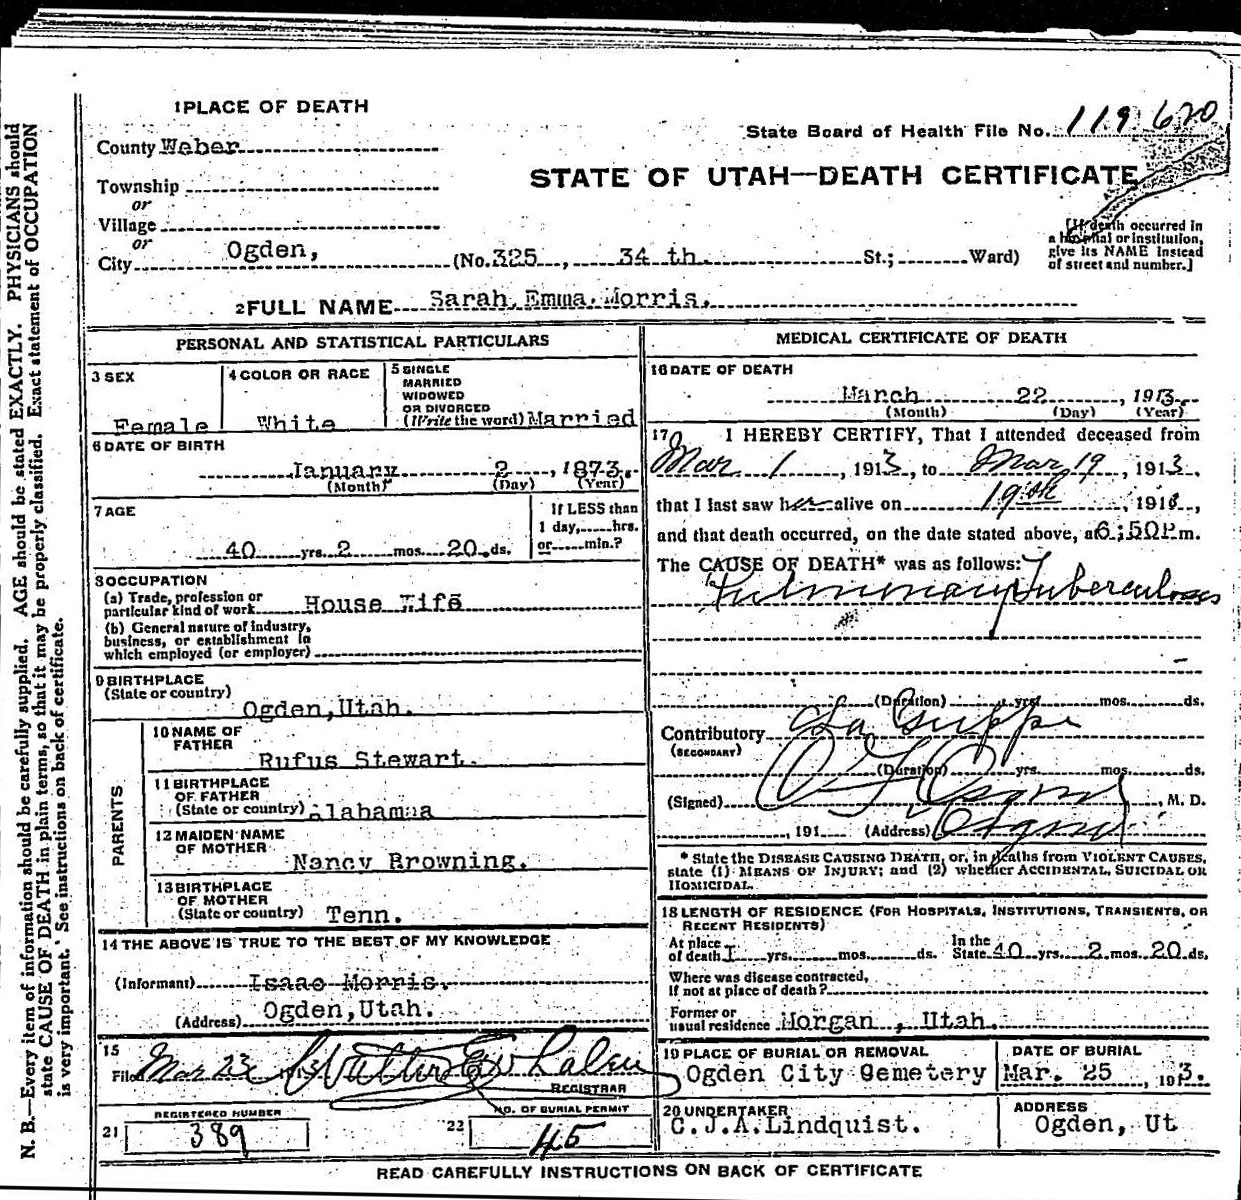 1 PLACE OF DEATH
State Board of Health File No. 119 620
County Weber
STATE OF UTAH—DEATH CERTIFICATE
Township
or
Village
or
City Ogden, (No. 325, 34 th. St.; Ward)
[If death occurred in
a hospital or institution,
give its NAME instead
of street and number.]
2 FULL NAME Sarah Emma Morris.
PERSONAL AND STATISTICAL PARTICULARS
3 SEX
Female
4 COLOR OR RACE
White
5 SINGLE
MARRIED
WIDOWED
OR DIVORCED
(Write the word) Married
6 DATE OF BIRTH
January 2, 1873.
(Month) (Day) (Year)
7 AGE
40 yrs. 2 mos. 20 ds.
If LESS than
1 day, hrs.
or min.?
8 OCCUPATION
(a) Trade, profession or
particular kind of work House Wife
(b) General nature of industry,
business, or establishment in
which employed (or employer)
9 BIRTHPLACE
(State or country)
Ogden, Utah.
PARENTS
10 NAME OF
FATHER
Rufus Stewart.
11 BIRTHPLACE
OF FATHER
(State or country) Alabamaa
12 MAIDEN NAME
OF MOTHER
Nancy Browning.
13 BIRTHPLACE
OF MOTHER
(State or country) Tenn.
14 THE ABOVE IS TRUE TO THE BEST OF MY KNOWLEDGE
(Informant) Isaac Morris.
(Address) Ogden, Utah.
15
Filed Mar 23
REGISTRAR
REGISTERED NUMBER
21 389
NO. OF BURIAL PERMIT
22 45
MEDICAL CERTIFICATE OF DEATH
16 DATE OF DEATH
March 22, 1913.
(Month) (Day) (Year)
17 I HEREBY CERTIFY, That I attended deceased from
Mar 1, 1913, to Mar 19, 1913,
that I last saw her alive on 19th, 1913,
and that death occurred, on the date stated above, at 6:50P.m.
The CAUSE OF DEATH* was as follows:
Pulmonary Tuberculosis
(Duration) yrs. mos. ds.
Contributory La Grippe
(SECONDARY)
(Duration) yrs. mos. ds.
(Signed) , M. D.
, 191 (Address) Ogden
* State the DISEASE CAUSING DEATH, or, in deaths from VIOLENT CAUSES,
state (1) MEANS OF INJURY; and (2) whether ACCIDENTAL, SUICIDAL OR
HOMICIDAL.
18 LENGTH OF RESIDENCE (FOR HOSPITALS, INSTITUTIONS, TRANSIENTS, OR
RECENT RESIDENTS)
At place
of death yrs. mos. ds.
In the
State 40 yrs. 2 mos. 20 ds.
Where was disease contracted,
If not at place of death?
Former or
usual residence Morgan, Utah.
19 PLACE OF BURIAL OR REMOVAL
Ogden City Cemetery
DATE OF BURIAL
Mar. 25, 1913.
20 UNDERTAKER
C.J.A. Lindquist.
ADDRESS
Ogden, Ut
READ CAREFULLY INSTRUCTIONS ON BACK OF CERTIFICATE
N. B.—Every item of information should be carefully supplied. AGE should be stated EXACTLY. PHYSICIANS should
state CAUSE OF DEATH in plain terms, so that it may be properly classified. Exact statement of OCCUPATION
is very important. See instructions on back of certificate.